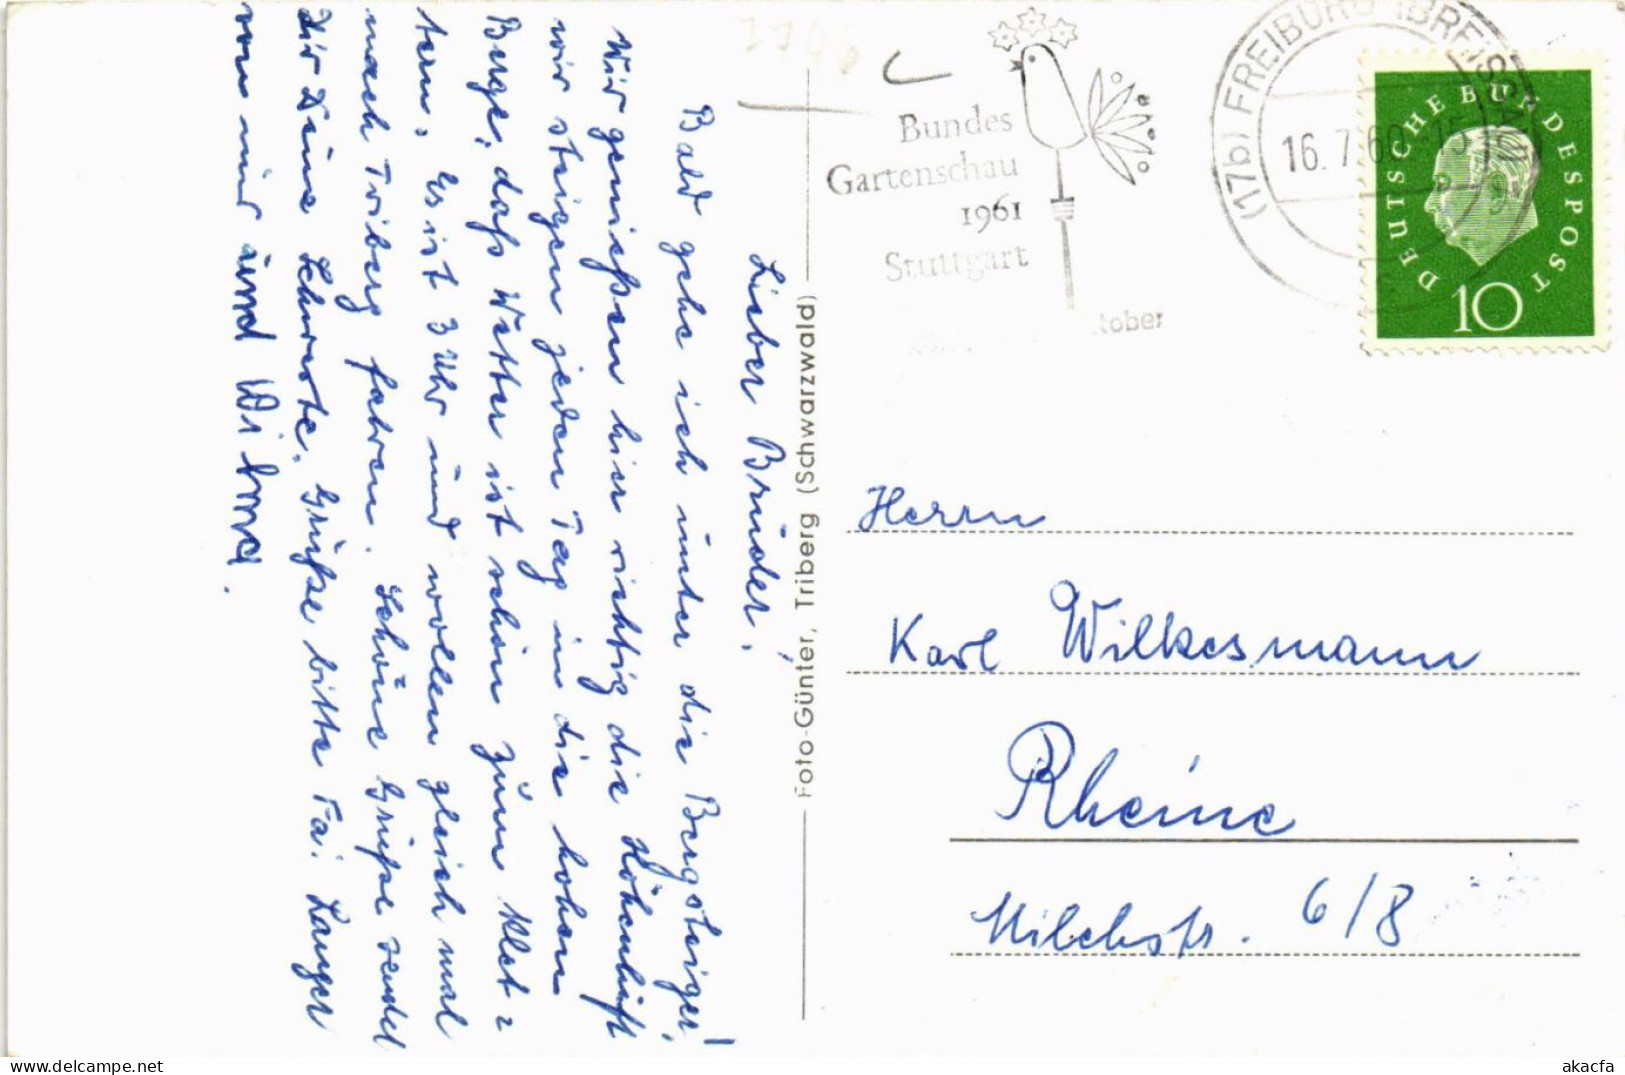 Lieber Brüder!
Bald gehe ich unter die Bergsteiger!
Wir genießen hier richtig die Höhenluft
wir steigen jeden Tag in die hohen
Berge, das Wetter ist schön zum Klet=
tern. Es ist 3 Uhr und wollen gleich mal
nach Triberg fahren. Schöne Grüße sendet
Dir Deine Schwester. Grüße bitte Fa. Langer
von mir und
Foto-Günter, Triberg (Schwarzwald)
Bundes
Gartenschau
1961
Stuttgart
tober
(17b) FREIBURG (BREISGAU)
16.7.60
15
DEUTSCHE BUNDESPOST
10
Herrn
Karl Wilkesmann
Rheine
Milchstr. 6/8
akacfa